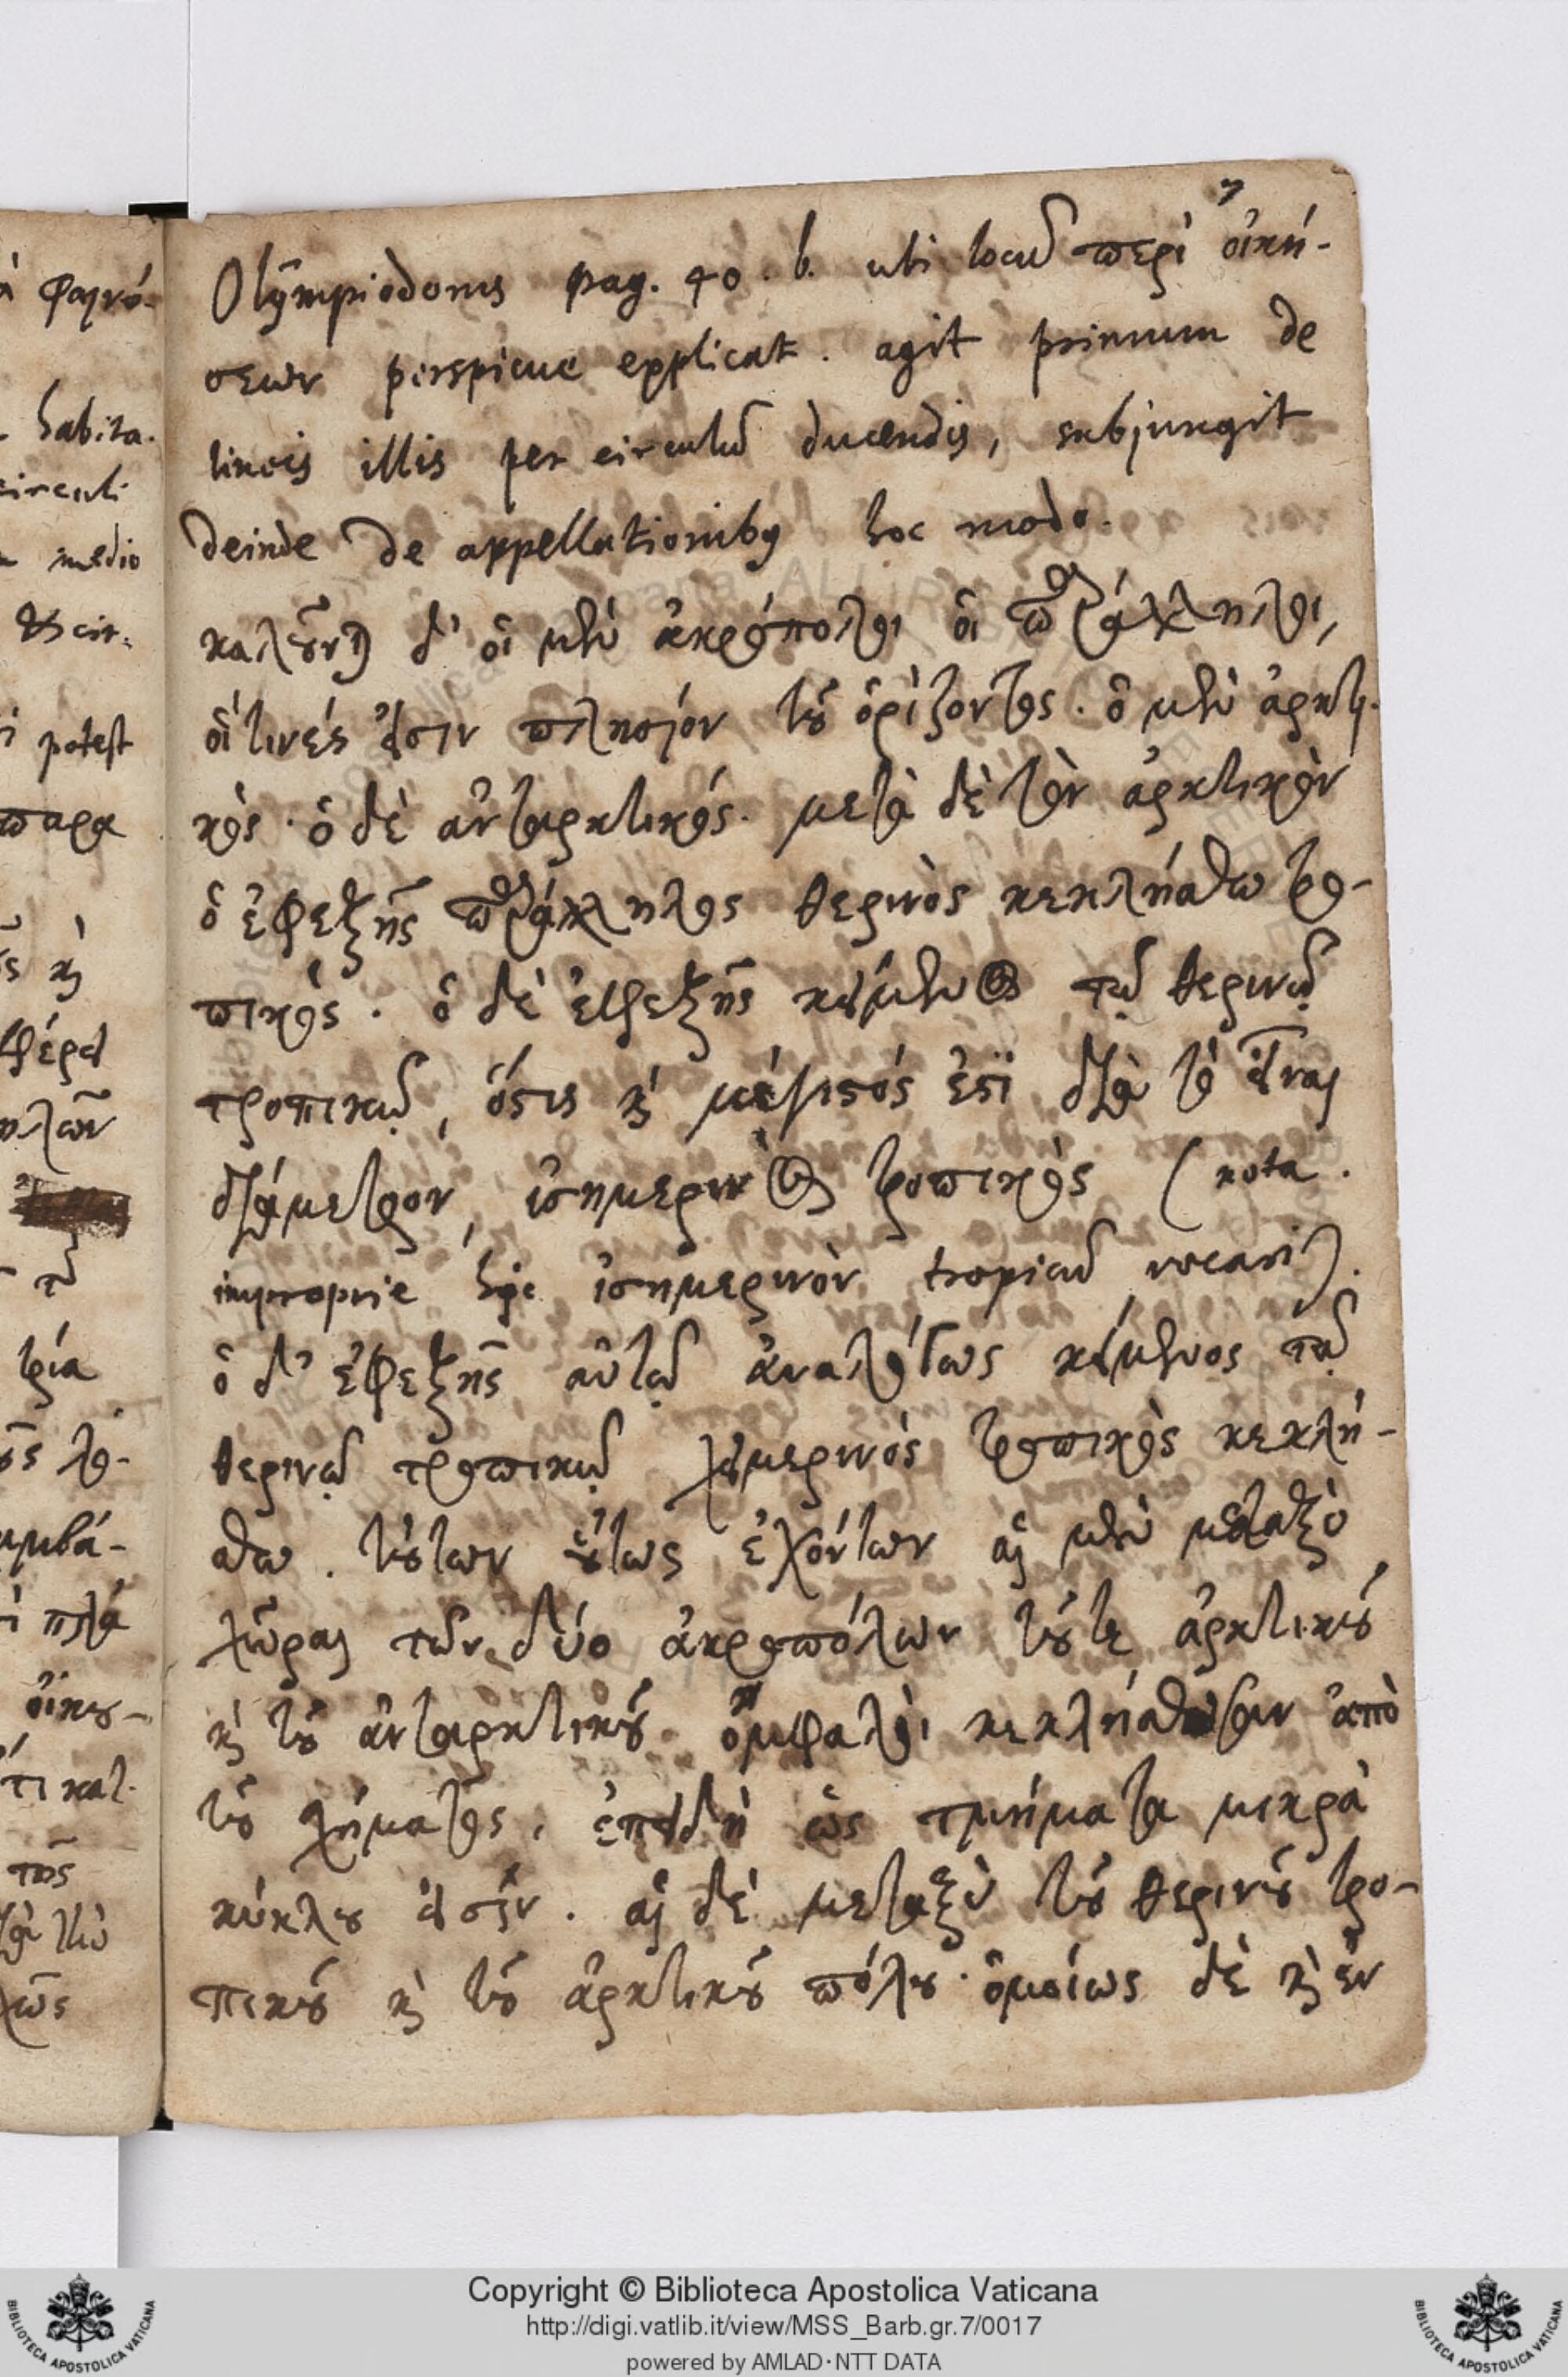 7
Olympiodorus pag. 40. b. ubi locũ περὶ οἰκή-
σεων perspicue explicat. agit primum de
lineis illis per circulũ ducendis, subjungit
deinde de appellationibꝰ hoc modo.
καλοῦνται δ' οἱ μὲν ἀκρόπολοι οἱ παράλληλοι,
οἵτινές εἰσιν πλησίον τοῦ ὁρίζοντος. ὁ μὲν ἀρκτι-
κὸς. ὁ δὲ ἀνταρκτικός. μετὰ δὲ τὸν ἀρκτικὸν
ὁ ἐφεξῆς παράλληλος θερινὸς κεκλήσθω τρο-
πικὸς. ὁ δὲ ἐφεξῆς κείμενος τῷ θερινῷ
τροπικῷ, ὅστις καὶ μέγιστός ἐστϊ διὰ τὸ εἶναι
διάμετρον, ἰσημερινὸς τροπικὸς (nota.
improprie hic ἰσημερινὸν tropicũ vocari).
ὁ δ' ἐφεξῆς αὐτῷ ἀναλόγως κείμενος τῷ
θερινῷ τροπικῷ χειμερινὸς τροπικὸς κεκλή-
σθω. τούτων οὕτως ἐχόντων αἱ μὲν μεταξὺ
χῶραι τῶν δύο ἀκροπόλων τοῦτε ἀρκτικοῦ
καὶ τοῦ ἀνταρκτικοῦ ὀμφαλοὶ κεκλήσθωσαν ἀπὸ
τοῦ σχήματος, ἐπειδὴ ὡς τμήματα μικρὰ
κύκλου εἰσίν. αἱ δὲ μεταξὺ τοῦ θερινοῦ τρο-
πικοῦ καὶ τοῦ ἀρκτικοῦ πόλου. ὁμοίως δὲ καὶ ἐν
habita.
circuli
medio
potest
παρα
τρία
οἰκου-
Copyright © Biblioteca Apostolica Vaticana
http://digi.vatlib.it/view/MSS_Barb.gr.7/0017
powered by AMLAD·NTT DATA
BIBLIOTECA APOSTOLICA VATICANA
BIBLIOTECA APOSTOLICA VATICANA